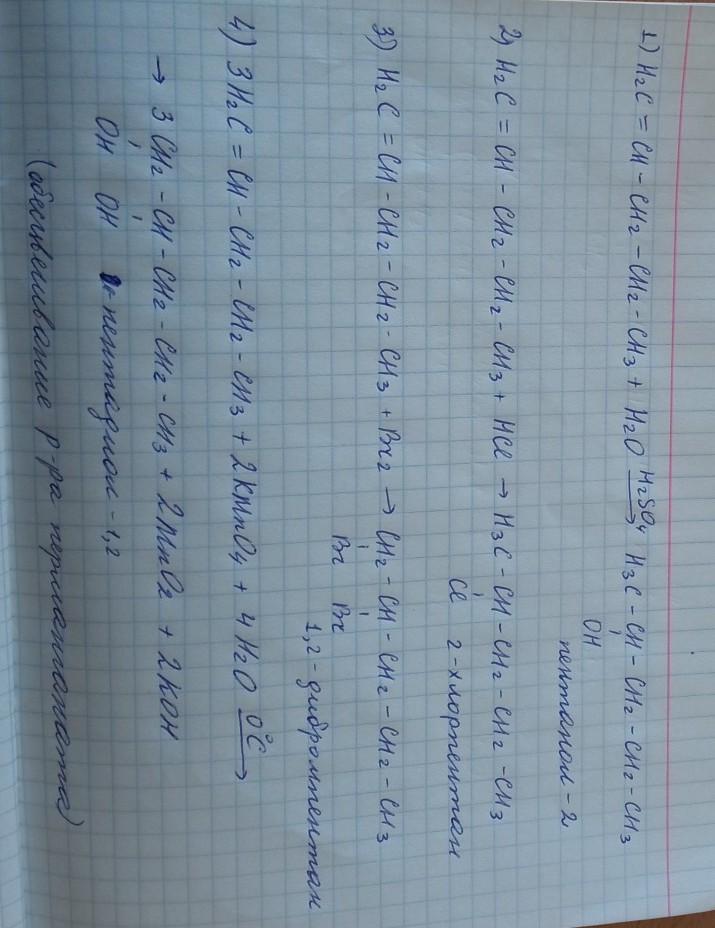 1) H₂C = CH - CH₂ - CH₂ - CH₃ + H₂O H₂SO₄→ H₃C - CH - CH₂ - CH₂ - CH₃
OH
пентанол - 2
2) H₂C = CH - CH₂ - CH₂ - CH₃ + HCl → H₃C - CH - CH₂ - CH₂ - CH₃
Cl 2-хлорпентан
3) H₂C = CH - CH₂ - CH₂ - CH₃ + Br₂ → CH₂ - CH - CH₂ - CH₂ - CH₃
Br Br
1,2 - дибромпентан
4) 3H₂C = CH - CH₂ - CH₂ - CH₃ + 2KMnO₄ + 4H₂O 0°C→
→ 3CH₂ - CH - CH₂ - CH₂ - CH₃ + 2MnO₂ + 2KOH
OH OH пентадиол - 1,2
(обесцвечивание р-ра перманганата)